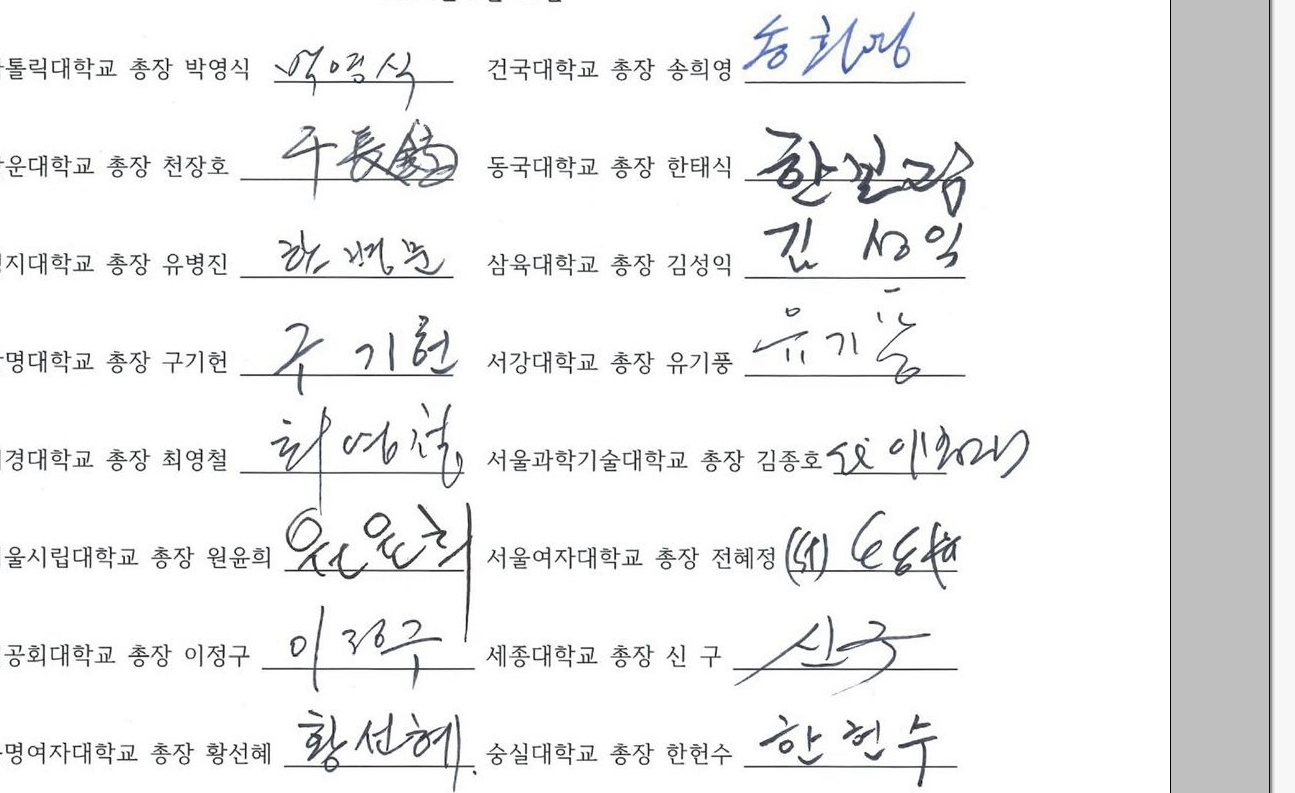 톨릭대학교 총장 박영식 박영식 건국대학교 총장 송희영 송희영
운대학교 총장 천장호 동국대학교 총장 한태식 한보광
지대학교 총장 유병진 삼육대학교 총장 김성익 김성익
명대학교 총장 구기헌 구기헌 서강대학교 총장 유기풍 유기풍
경대학교 총장 최영철 최영철 서울과학기술대학교 총장 김종호
울시립대학교 총장 원윤희 원윤희 서울여자대학교 총장 전혜정
공회대학교 총장 이정구 이정구 세종대학교 총장 신 구 신구
명여자대학교 총장 황선혜 황선혜 숭실대학교 총장 한헌수 한헌수